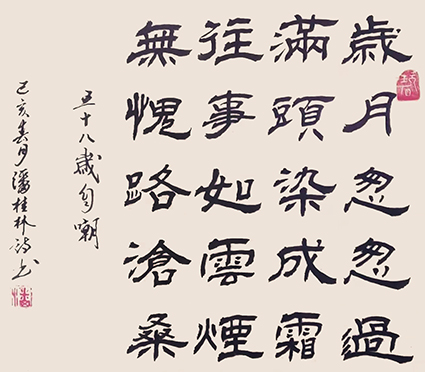 歲月怱怱過
滿頭染成霜
往事如雲煙
無愧路滄桑
五十八歲自嘲
己亥春月潘桂林詩书